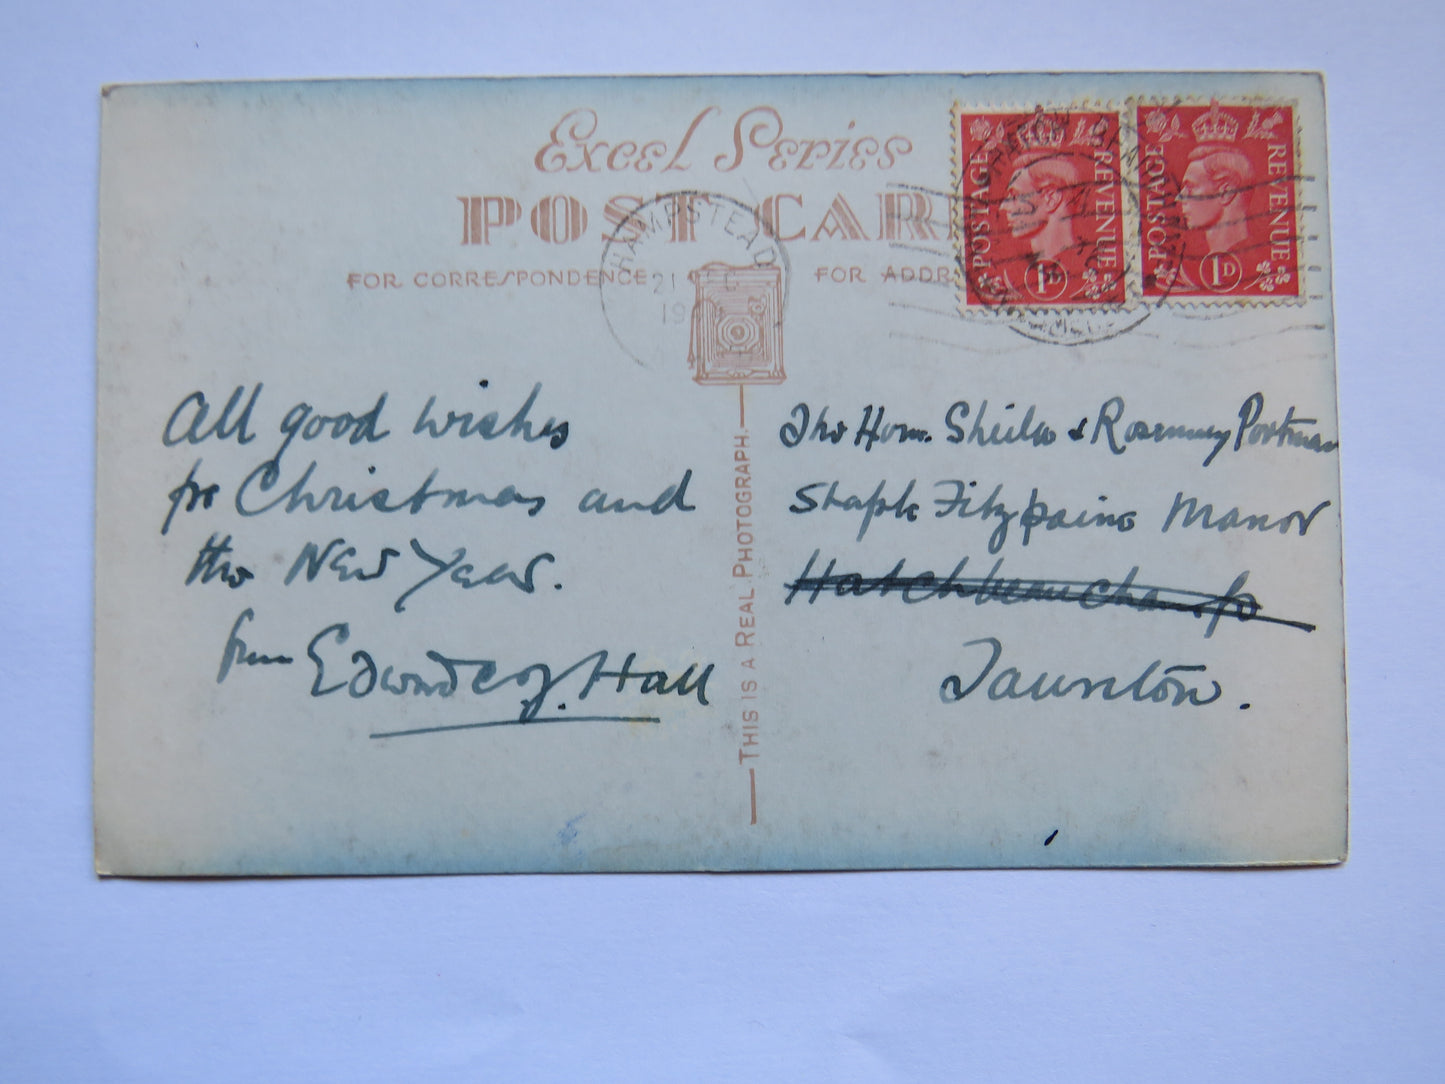 Excel Series
POST CAR
FOR CORRESPONDENCE
FOR ADDR
HAMPSTEAD
21
19
POSTAGE REVENUE
1D
POSTAGE REVENUE
1D
All good wishes
for Christmas and
the New Year.
from Edward Hall
THIS IS A REAL PHOTOGRAPH.
The Hon. Sheila & Rosemary Portman
Staple Fitzpaine Manor
Hatchbeauchamp
Taunton.